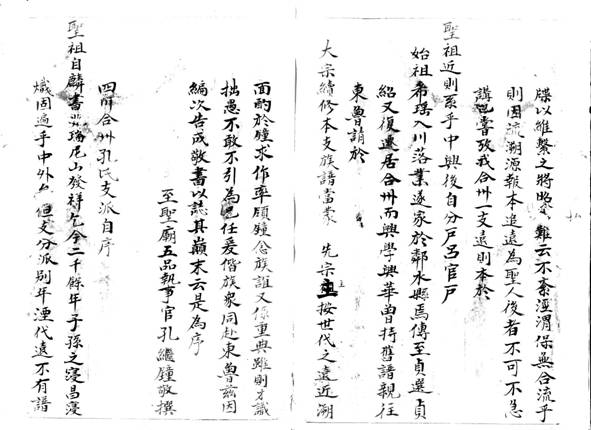 牒以維繫之將昭穆難云不紊涇渭保無合流乎
則因流溯源報本追遠為聖人後者不可不急
講也嘗攷我合州一支遠則本於
聖祖近則系乎中興後自分戶呂官戶
始祖希瑶入川落業遂家於鄰水縣焉傳至貞選貞
紹又復遷居合州而興學興華曾持舊譜親往
東魯請於
大宗續修本支族譜當蒙 先宗主按世代之遠近溯
面酌於鐘求作率領鐘合族誼又係重典雖則才識
拙愚不敢不引為己任爰偕族衆同赴東魯兹因
編次告成敬書以誌其巔末云是為序
至聖廟五品執事官孔繼鐘敬撰
四川合州孔氏支派自序
聖祖自麟書 瑞尼山發祥乞今二千餘年子孫之寖昌寖
熾固遍乎中外矣但支分派別年湮代遠不有譜